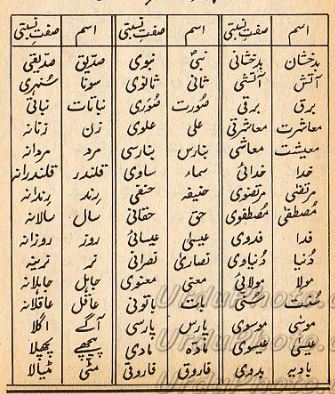 اسم صفتِ نسبتی اسم صفتِ نسبتی اسم صفتِ نسبتی
بدخشان بدخشانی نبیؐ نبوی صدیق صدیقی
آتش آتشی ثانی ثانوی سونا سنہری
برق برقی صورت صوری نباتات نباتی
معاشرت معاشرتی علی علوی زن زنانہ
معیشت معاشی بنارس بنارسی مرد مردانہ
خدا خدائی سماء سماوی قلندر قلندرانہ
مرتضیٰ مرتضوی حنیفہ حنفی رِند رِندانہ
مصطفیٰ مُصطفوی حق حقانی سال سالانہ
فدا فدوی عیسیٰ عیسائی روز روزانہ
دُنیا دُنیاوی نصاریٰ نصرانی نر نرینہ
مولا مولائی معنی معنوی جاہل جاہلانہ
بات باتونی عاقل عاقلانہ
موسیٰ موسوی پارس پارسی آگے اگلا
عیسیٰ عیسوی مادّہ مادی پیچھے پچھلا
بادیہ بدوی فاروق فاروقی مٹی مٹیالا